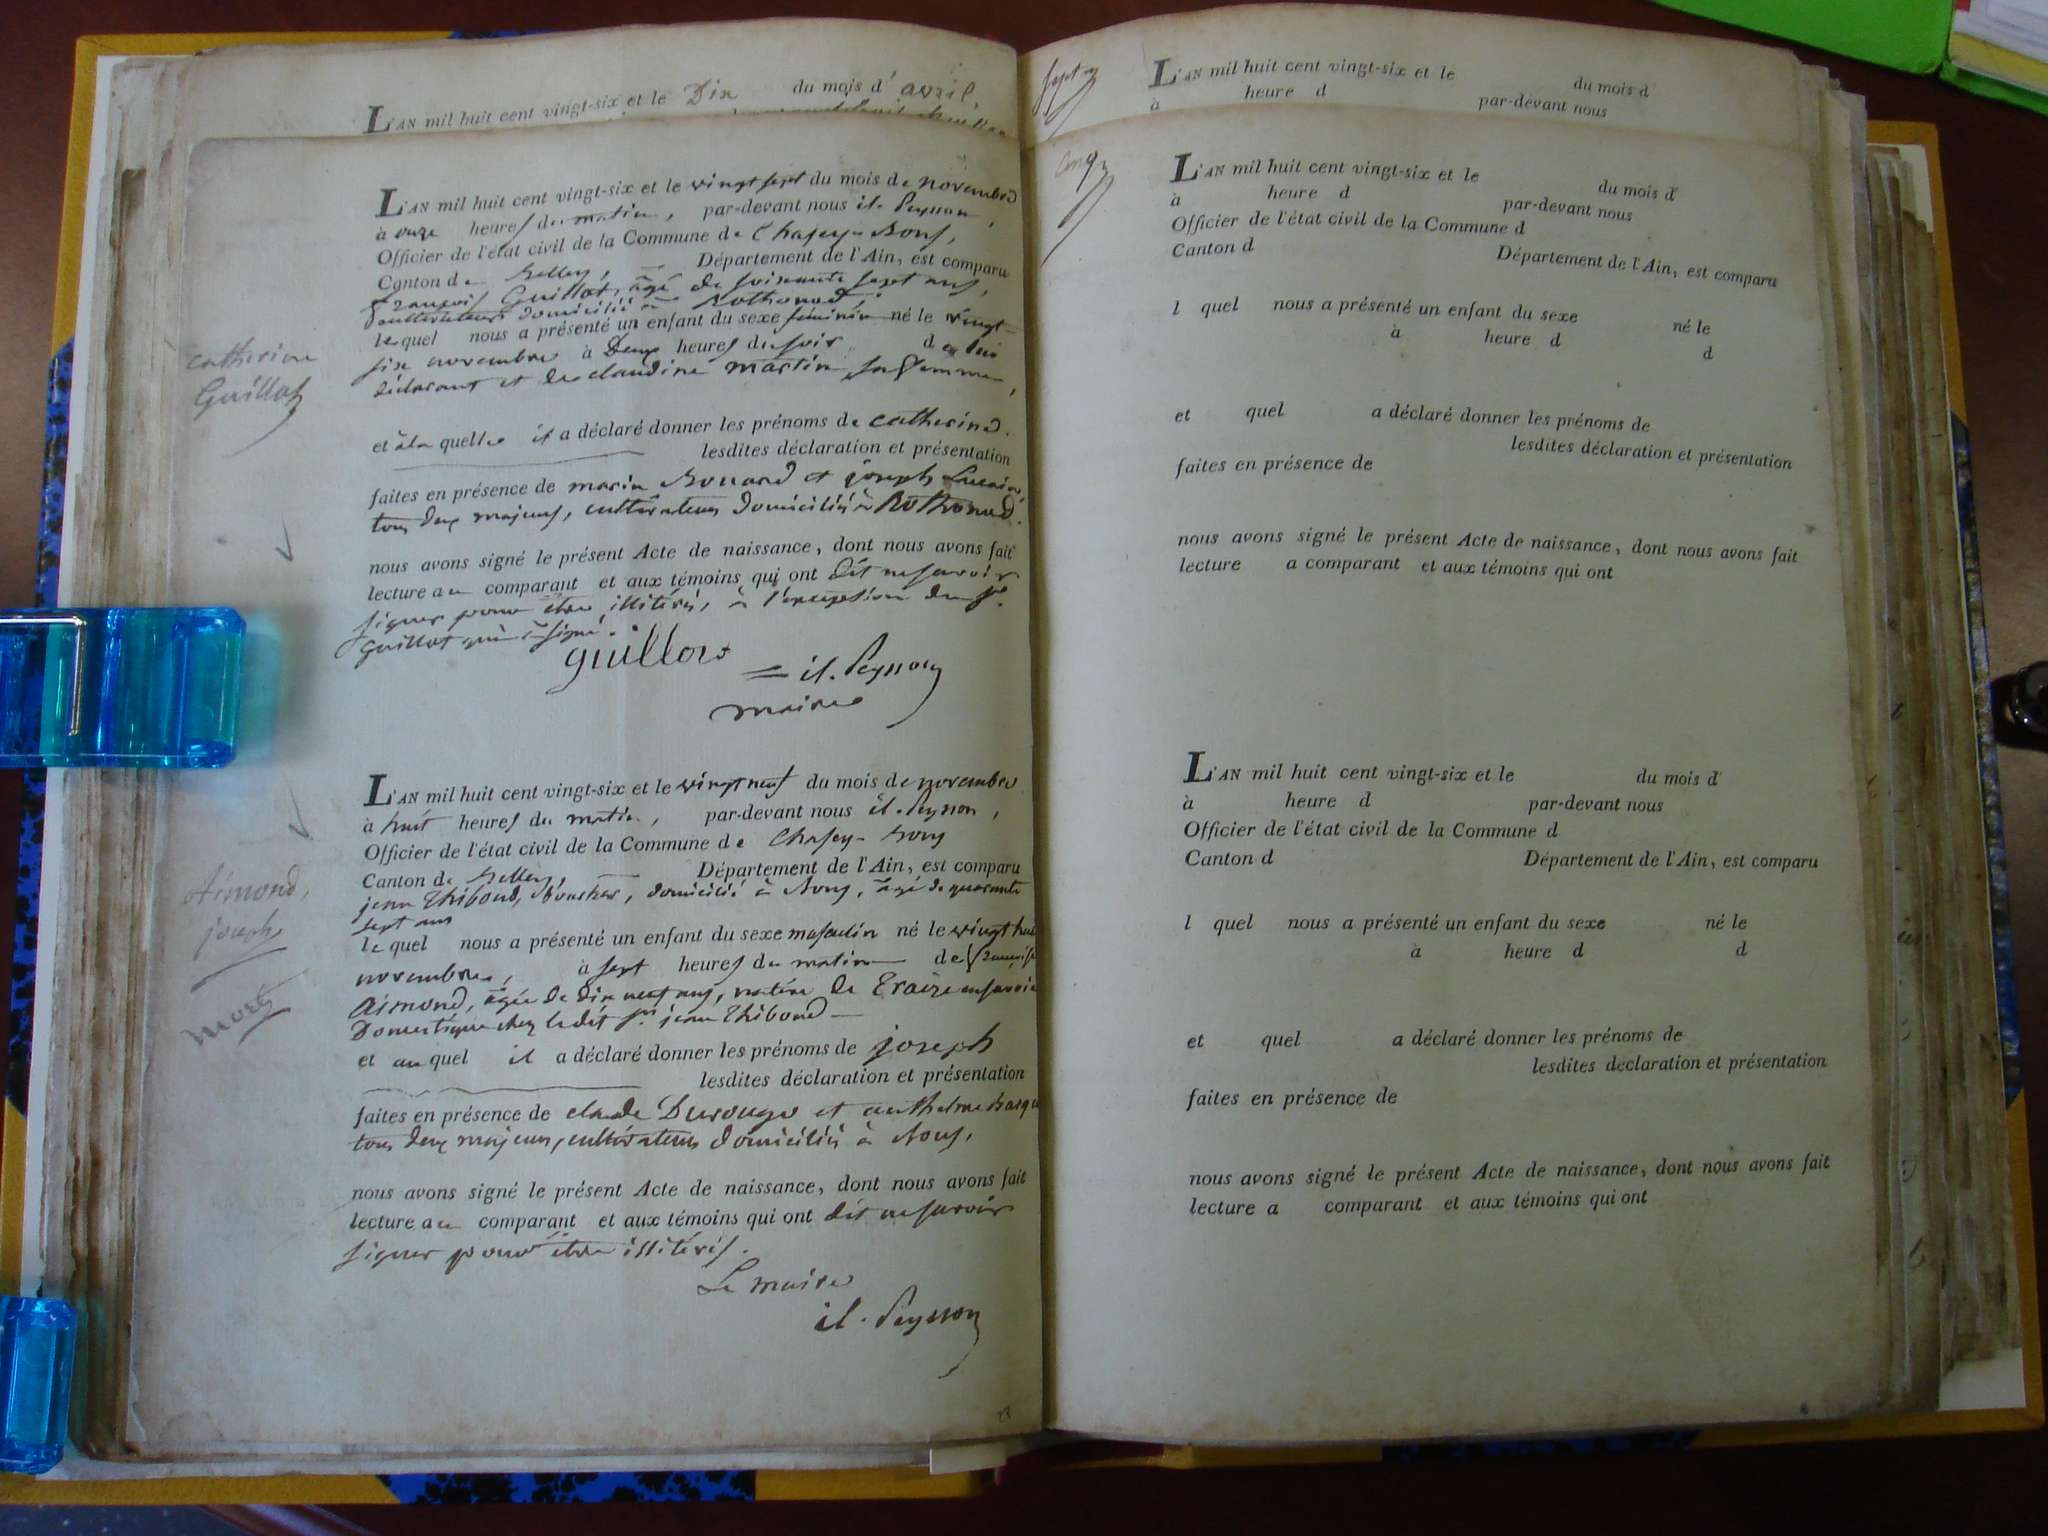 L'AN mil huit cent vingt-six et le Dix du mois d'avril,
L'AN mil huit cent vingt-six et le vingt sept du mois de novembre
à onze heures du matin, par-devant nous il. Peysson,
Officier de l'état civil de la Commune de Chasey-Bons,
Canton de Belley, Département de l'Ain, est comparu
françois Guillot, âgé de soixante sept ans,
cultivateur domicilié à Rothonod,
lequel nous a présenté un enfant du sexe féminin né le vingt
six novembre à Deux heures du soir, de lui
déclarant et de claudine martin, sa femme,
catherine
Guillot
et à la quelle il a déclaré donner les prénoms de catherine.
lesdites déclaration et présentation
faites en présence de marin et joseph
tous deux majeurs, cultivateurs domiciliés à Rothonod.
nous avons signé le présent Acte de naissance, dont nous avons fait
lecture au comparant et aux témoins qui ont dit ne savoir
signer pour être illitérés, à l'exception du sr.
Guillot qui a signé.
guillot
= il. Peysson
maire
L'AN mil huit cent vingt-six et le vingt neuf du mois de novembre
à huit heures du matin, par-devant nous il. Peysson,
Officier de l'état civil de la Commune de Chasey-Bons
Canton de Belley, Département de l'Ain, est comparu
jean Thiboud, domicilié à Bons, âgé de quarante
sept ans
Aimond,
joseph
mort
lequel nous a présenté un enfant du sexe masculin né le vingt huit
novembre, à sept heures du matin de françoise
Aimond, âgée de dix neuf ans, native de Traize en savoie
Domestique chez le dit sr. jean Thiboud
et au quel il a déclaré donner les prénoms de joseph
lesdites déclaration et présentation
faites en présence de claude Durouge et anthelme
tous deux majeurs, cultivateurs domiciliés à Bons,
nous avons signé le présent Acte de naissance, dont nous avons fait
lecture au comparant et aux témoins qui ont dit ne savoir
signer pour être illitérés.
Le maire
il. Peysson
sept
L'AN mil huit cent vingt-six et le du mois d
à heure d par-devant nous
cinq
L'AN mil huit cent vingt-six et le du mois d
à heure d par-devant nous
Officier de l'état civil de la Commune d
Canton d Département de l'Ain, est comparu
l quel nous a présenté un enfant du sexe né le
à heure d d
et quel a déclaré donner les prénoms de
lesdites déclaration et présentation
faites en présence de
nous avons signé le présent Acte de naissance, dont nous avons fait
lecture a comparant et aux témoins qui ont
L'AN mil huit cent vingt-six et le du mois d
à heure d par-devant nous
Officier de l'état civil de la Commune d
Canton d Département de l'Ain, est comparu
l quel nous a présenté un enfant du sexe né le
à heure d d
et quel a déclaré donner les prénoms de
lesdites déclaration et présentation
faites en présence de
nous avons signé le présent Acte de naissance, dont nous avons fait
lecture a comparant et aux témoins qui ont